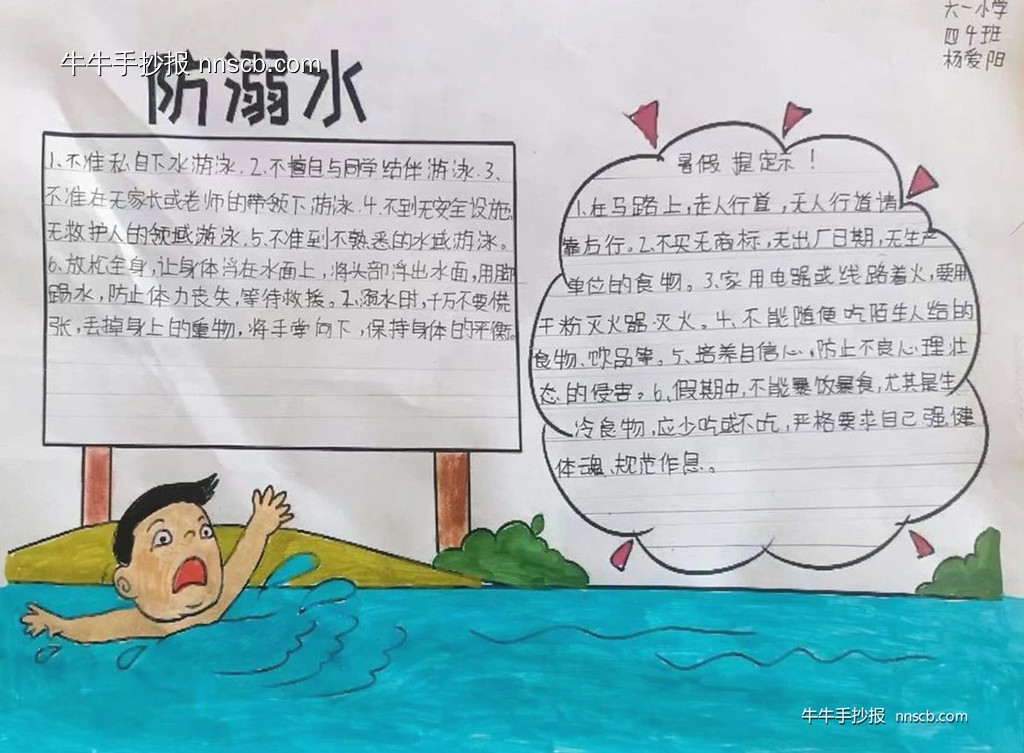 大一小学
四4班
杨爱阳
牛牛手抄报 nnscb.com
防溺水
1、不准私自下水游泳.2.不擅自与同学结伴游泳.3、
不准在无家长或老师的带领下游泳.4.不到无安全设施,
无救护人的领域游泳.5.不准到不熟悉的水域游泳。
6、放松全身,让身体浮在水面上,将头部浮出水面,用脚
踢水,防止体力丧失,等待救援。2、溺水时,千万不要慌
张,丢掉身上的重物,将手掌向下,保持身体的平衡。
暑假 提定示!
1.在马路上,走人行道,无人行道请
靠右行。2.不买无商标,无出厂日期,无生产
单位的食物。3.家用电器或线路着火,要用
干粉灭火器灭火。4、不能随便吃陌生人给的
食物、饮品等。5、培养自信心,防止不良心理壮
态的侵害。6、假期中,不能暴饮暴食,尤其是生
冷食物,应少吃或不吃,严格要求自己强健
体魂、规范作息。
牛牛手抄报 nnscb.com